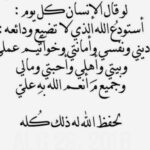 لو قال الإنسان كل يوم :
أستودع الله الذي لا تضيع ودائعه :
ديني ونفسي وأمانتي وخواتيم عملي
وبيتي وأهلي وأحبتي ومالي
وجميع ما أنعم الله به علي
لحفظ الله له ذلك كله